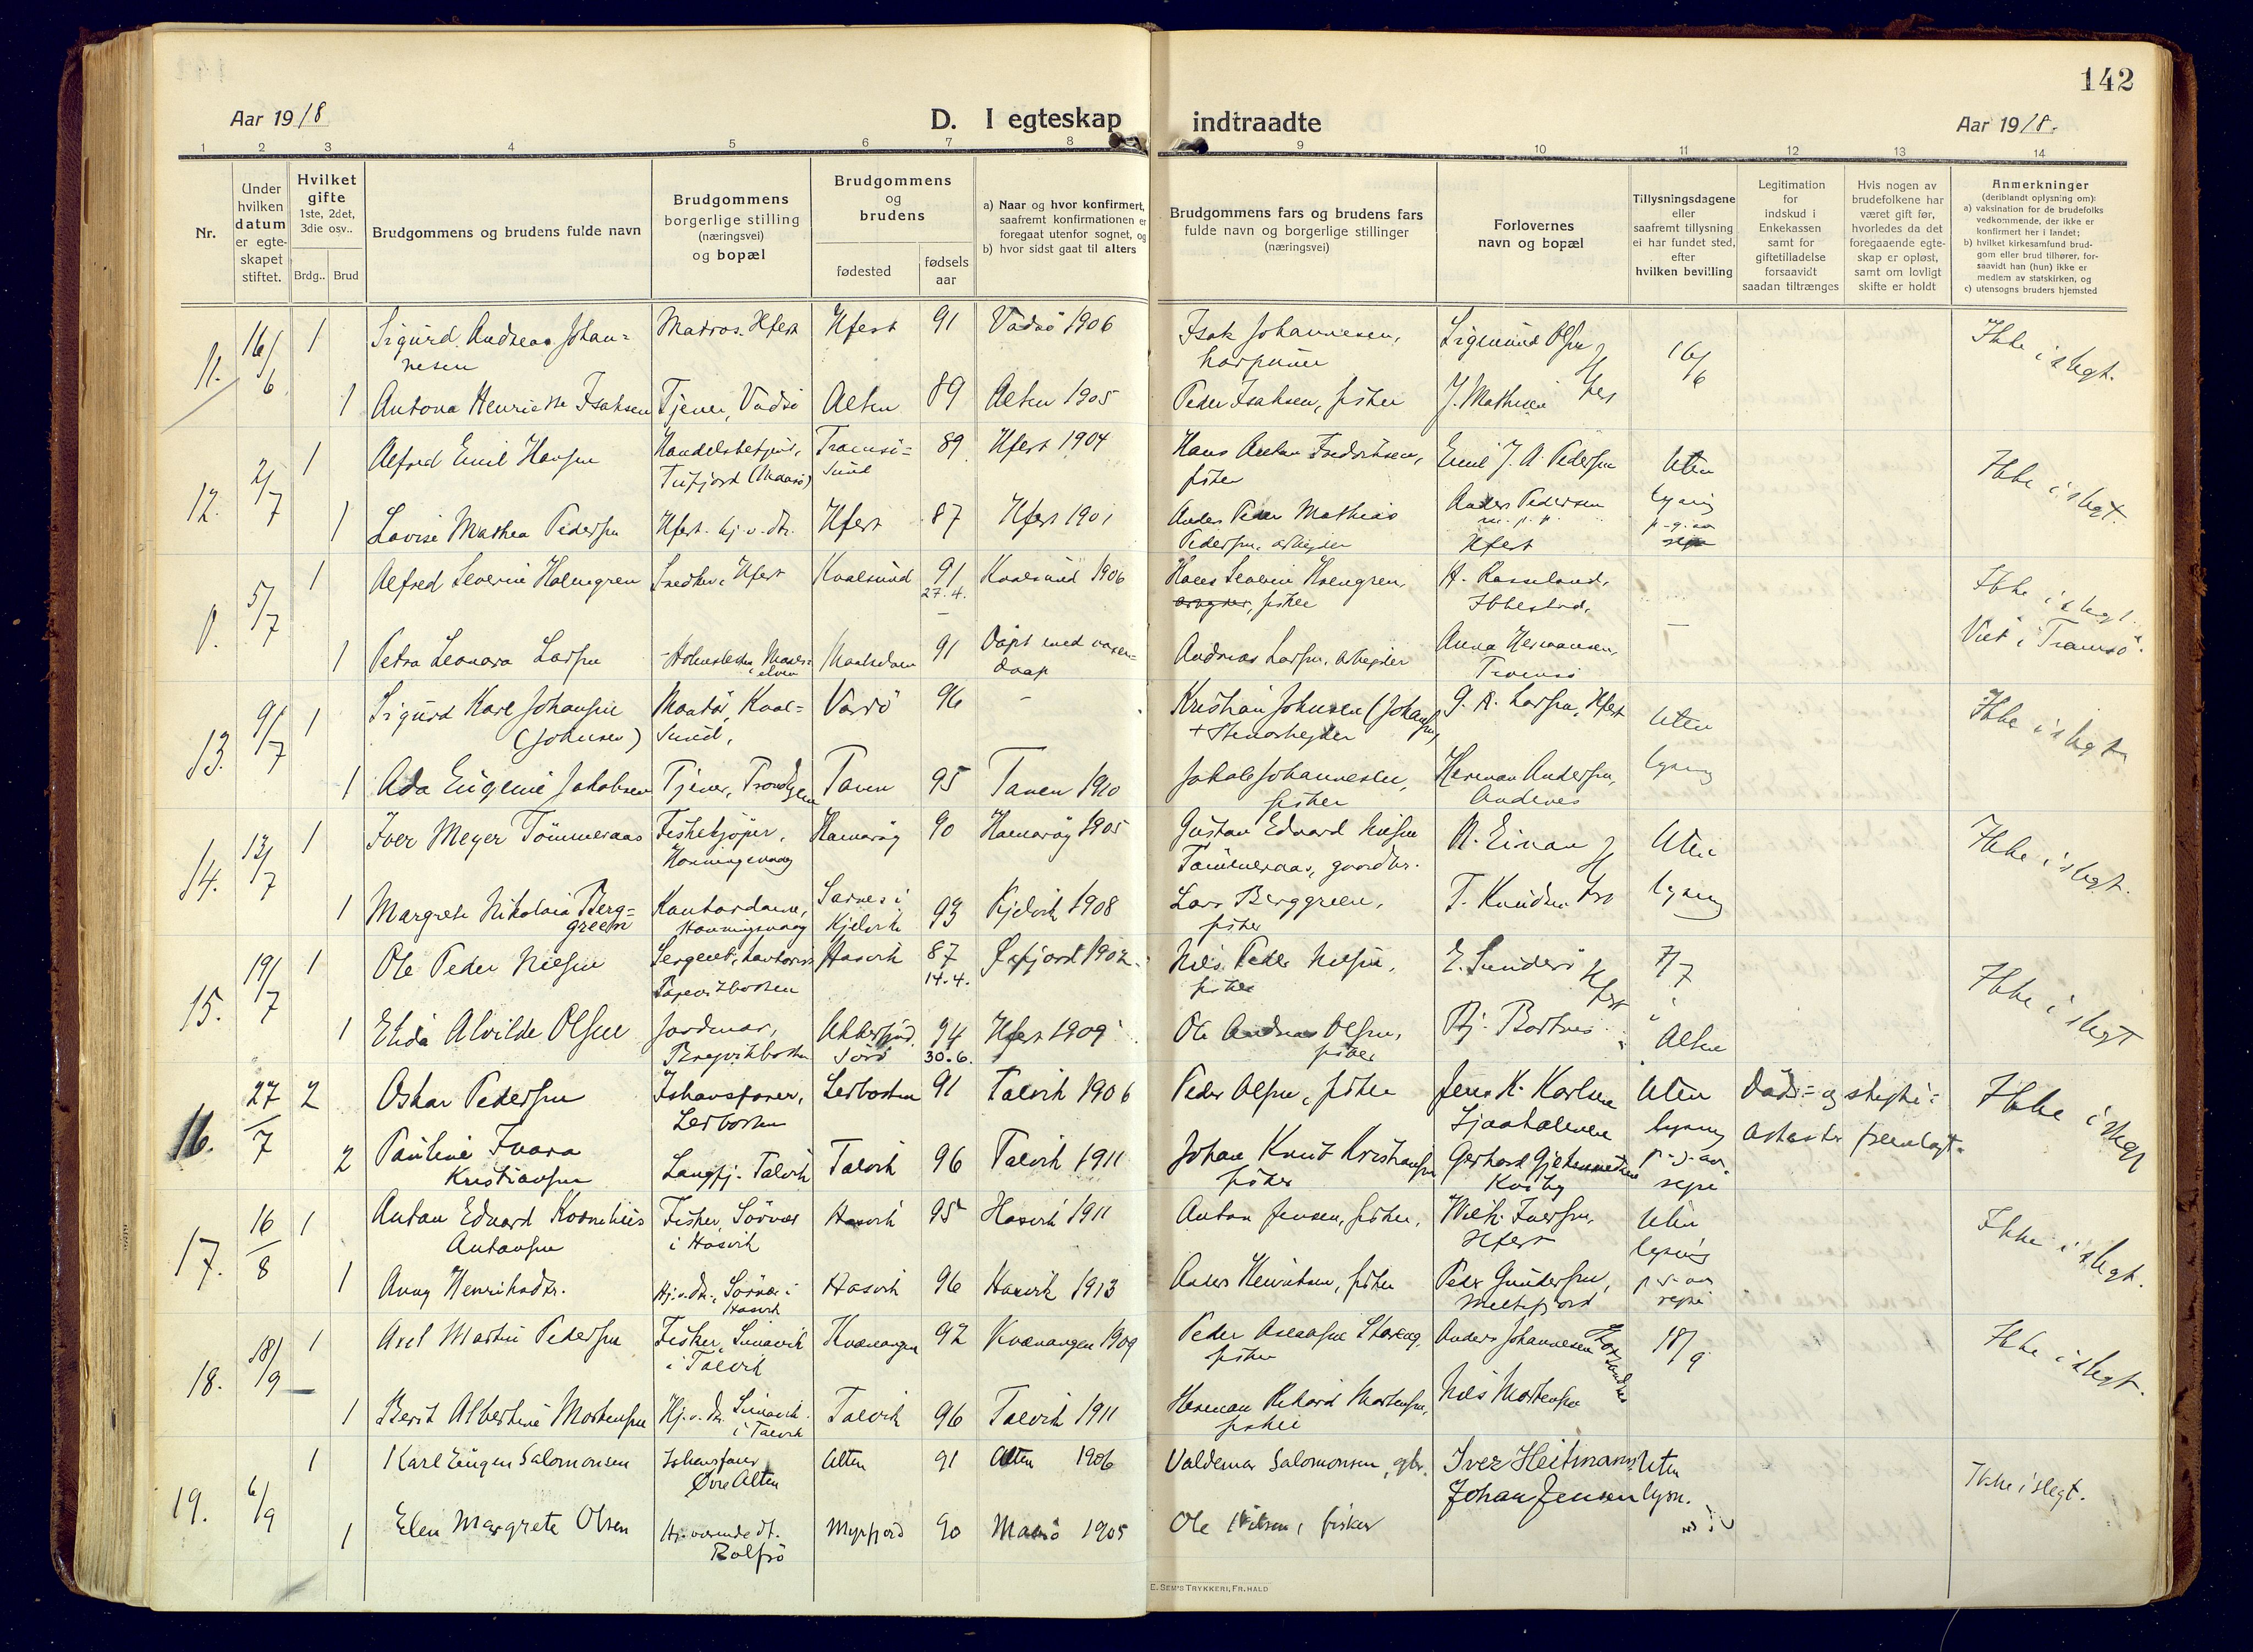 142
Aar 1918
D. I egteskap indtraadte
Aar 1918.
1 2 3 4 5 6 7 8 9 10 11 12 13 14
Nr.
Under hvilken datum er egteskapet stiftet.
Hvilket gifte 1ste, 2det, 3die osv..
Brdg.. Brud
Brudgommens og brudens fulde navn
Brudgommens borgerlige stilling (næringsvei) og bopæl
Brudgommens og brudens
fødested
fødselsaar
a) Naar og hvor konfirmert, saafremt konfirmationen er foregaat utenfor sognet, og
b) hvor sidst gaat til alters
Brudgommens fars og brudens fars fulde navn og borgerlige stillinger (næringsvei)
Forlovernes navn og bopæl
Tillysningsdagene eller saafremt tillysning ei har fundet sted, efter hvilken bevilling
Legitimation for indskud i Enkekassen samt for giftetilladelse forsaavidt saadan tiltrænges
Hvis nogen av brudefolkene har været gift før, hvorledes da det foregaaende egteskap er opløst, samt om lovligt skifte er holdt
Anmerkninger (deriblandt oplysning om):
a) vaksination for de brudefolks vedkommende, der ikke er konfirmert her i landet;
b) hvilket kirkesamfund brudgom eller brud tilhører, forsaavidt han (hun) ikke er medlem av statskirken, og
c) utensogns bruders hjemsted
11. 16/6 1 Sigurd Andreas Johan= Matros. Hfest Hfest 91 Vadsö 1906 Isak Johannesen, Sigmund Olsen 16/6 Ikke i slegt.
nesen
1 Antona Henriette Isaksen Tjener, Vadsö Alten 89 Alten 1905 Peder Isaksen, fisker J. Mathisen
12. 2/7 1 Alfred Emil Hansen Tromsö= 89 Hfest 1904 Emil J. A. Pedersen Uten Ikke i slegt.
Tufjord (Maasö) sund fisker
1 Lovise Mathea Pedersen Hfest. hj. v. dtr. Hfest 87 Hfest 1901 Anders Peder Mathias Anders Pedersen lysning
Pedersen, arbeider Hfest
5/7 1 Alfred Severin Holmgren Snedker, Hfest Kvalsund 91 Kvalsund 1906 Hans Severin Holmgren, Ikke i slegt.
27.4. fisker Ibbestad.
1 Petra Leonora Larsen 91 Döpt med voxen= Andreas Larsen, arbeider Anna Hermansen, Viet i Tromsö
daap Tromsö
13. 9/7 1 Sigurd Karl Johansen Kval= Vardö 96 Kristian Johnsen (Johansen) G. A. Larsen, Hfest Uten Ikke i slegt
(Johnsen) sund,
1 Ada Eugenie Jakobsen Tjener, Tanen 95 Tanen 1910 Jakob Johannesen, Herman Andersen, lysning
fisker Andenes
14. 13/7 1 Iver Meyer Tömmeraas Fiskekjöper, Hamaröy 90 Hamaröy 1905 Gustav Edvard Nilsen Uten Ikke i slegt.
Honningsvaag Tömmeraas, gaardbr.
1 Margrete Nikolaia Berg= Kontordame, Sarnes i 93 Kjelvik 1908 Lars Berggreen, T. Knudsen lysning
green Honningsvaag Kjelvik fisker
15. 19/7 1 Ole Peder Nielsen Hasvik 87 Öxfjord 1902 Nils Peder Nielsen, 7/7 Ikke i slegt
14.4. fisker
1 Elida Alvilde Olsen Jordmor, 94 Hfest 1909 Ole Andreas Olsen, Alten
Sörö 30.6. fisker
16. 27/7 2 Oskar Pedersen Ishavsfarer, Lerbotten 91 Talvik 1906 Peder Olsen, fisker Jens K. Karlsen Uten Döds= og skifte= Ikke i slegt
Lerbotten lysning attester fremlagt.
2 Pauline Ivara Langfj. Talvik Talvik 96 Talvik 1911 Johan Knut Kristiansen Gerhard
Kristiansen fisker Kviby
17. 16/8 1 Anton Edvard Kornelius Fisker, Sörvær Hasvik 95 Hasvik 1911 Anton Jensen, fisker, Iversen, Uten Ikke i slegt.
Antonsen i Hasvik Hfest lysning
1 Anny Henriksdtr. Hj.v.dtr., Sörvær i Hasvik 96 Hasvik 1913 Anders Henriksen, fisker Peder Gundersen,
Hasvik Meltefjord
18. 18/9 1 Axel Martin Pedersen Fisker, Kvænangen 92 Kvænangen 1909 Anders Johannesen 18/9 Ikke i slegt.
i Talvik fisker
1 Berit Albertine Mortensen Hj.v.dtr. Talvik 96 Talvik 1911 Herman Rikard Mortensen, Nils Mortensen
i Talvik fisker
19. 6/9 1 Karl Eugen Salomonsen Ishavsfarer Alten 91 Alten 1906 Valdemar Salomonsen, gbr. Iver Heitmann Uten Ikke i slegt.
Øvre Alten Johan Jensen lysn.
1 Elen Margrete Olsen Hj. værende dt. Myrfjord 90 Masö 1905 Ole Nilsen, fisker
Rolfsö
E. Sem's Trykkeri, Fr.hald